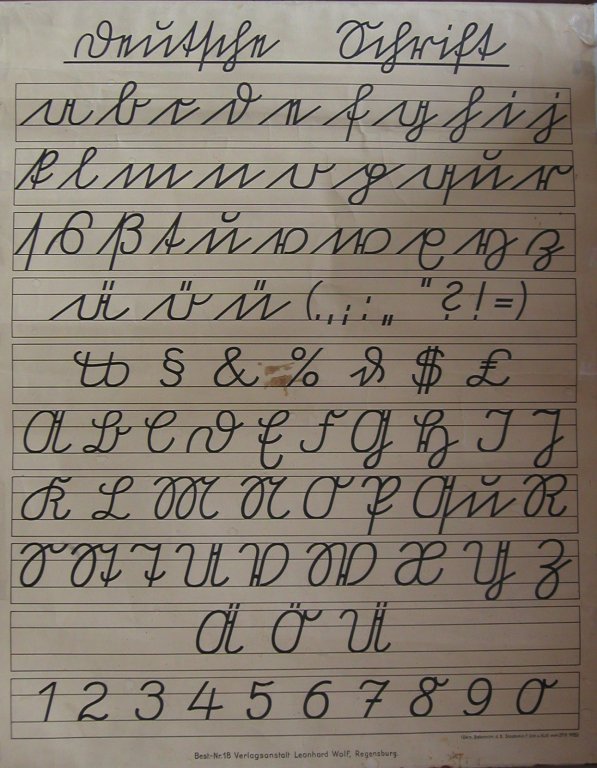 Deutsche Schrift
a b c d e f g h i j
k l m n o p qu r
ſ s ß t u v w x y z
ä ö ü (.,;:„ "?!=)
℔ § & % ₰ $ £
A B C D E F G H I J
K L M N O P Qu R
S St T U V W X Y Z
Ä Ö Ü
1 2 3 4 5 6 7 8 9 0
Best-Nr. 18 Verlagsanstalt Leonhard Wolf, Regensburg.